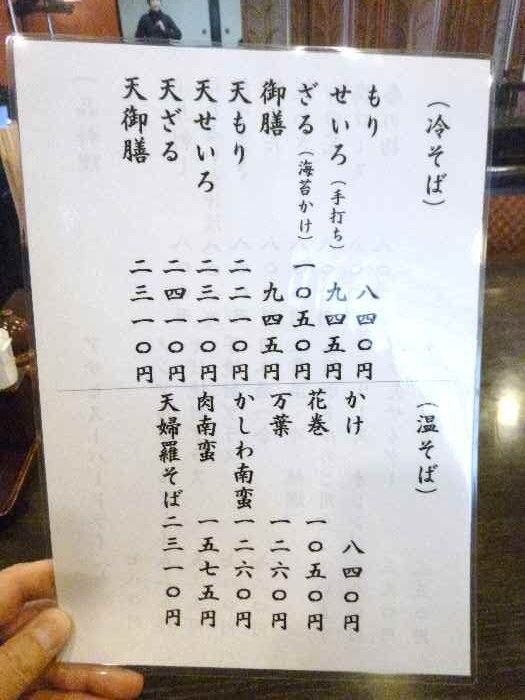 （冷そば）
もり 八四〇円
せいろ（手打ち） 九四五円
ざる（海苔かけ） 一〇五〇円
御膳 九四五円
天もり 二二一〇円
天せいろ 二三一〇円
天ざる 二四一〇円
天御膳 二三一〇円
（温そば）
かけ 八四〇円
花巻 一〇五〇円
万葉 一二六〇円
かしわ南蛮 一二六〇円
肉南蛮 一五七五円
天婦羅そば 二三一〇円